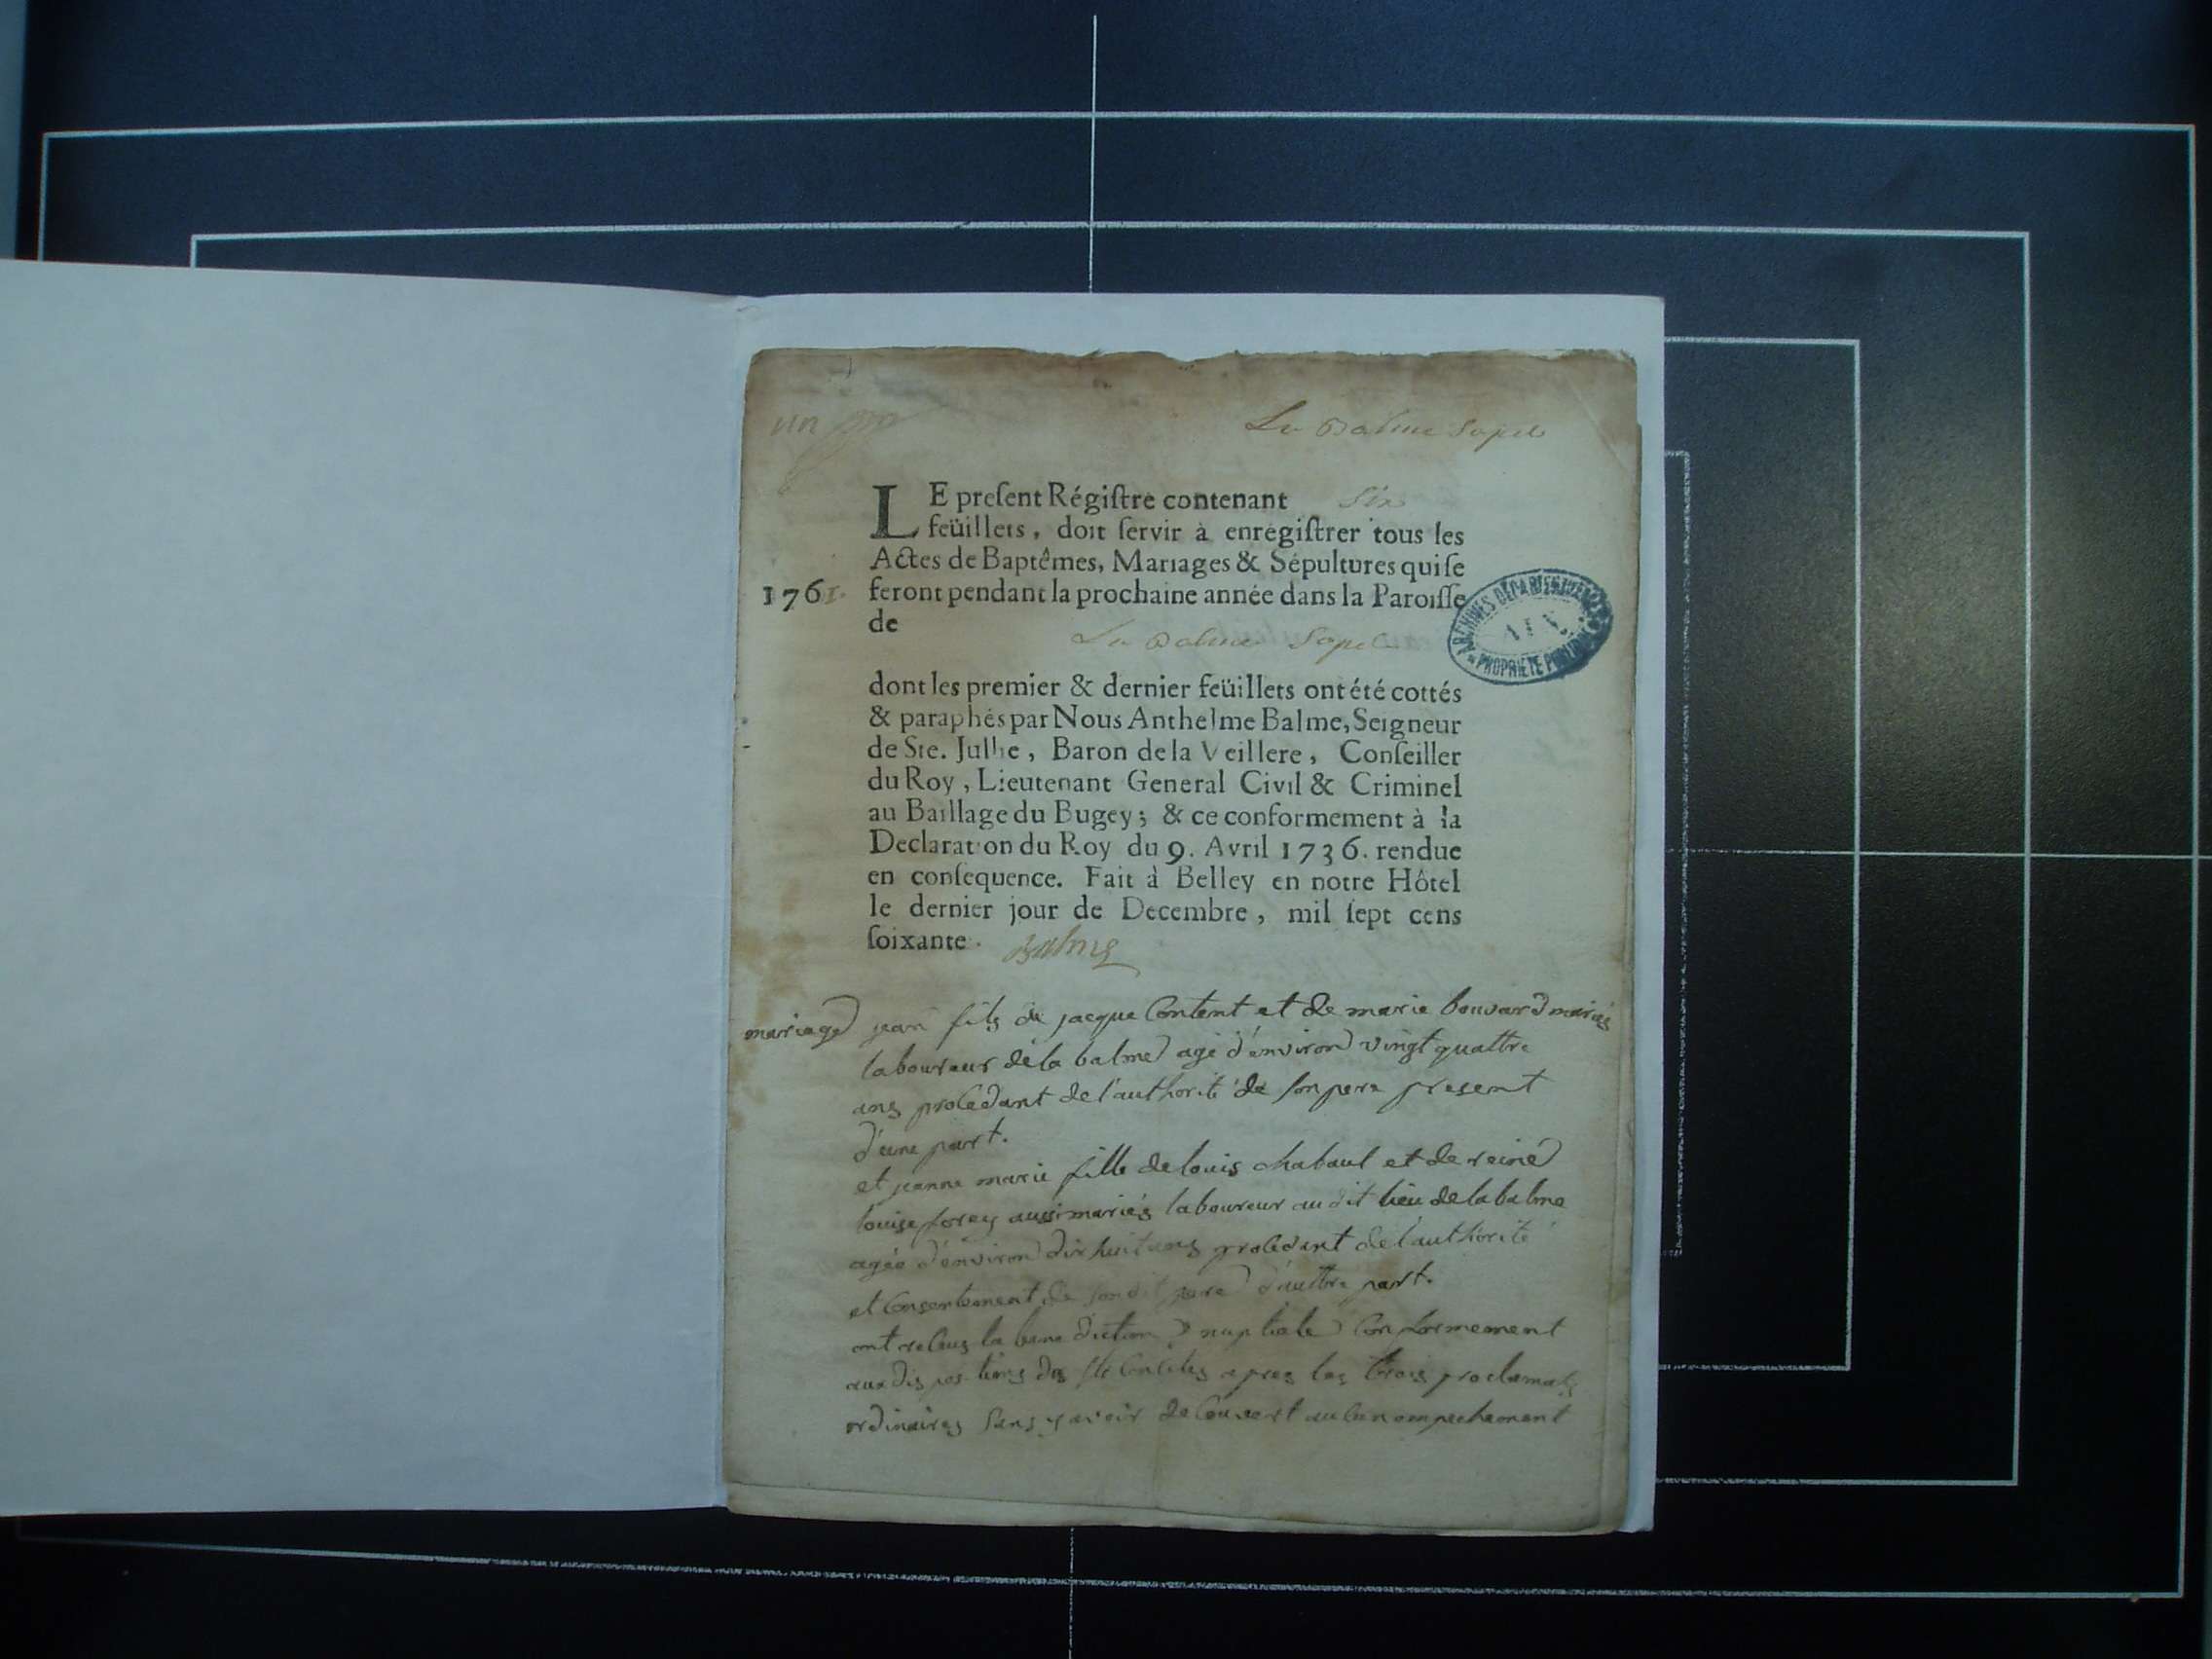 un
La Balme Sapel
LE preſent Régiſtre contenant Six
feüillets, doit ſervir à enrégiſtrer tous les
Actes de Baptêmes, Mariages & Sépultures qui ſe
1761. feront pendant la prochaine année dans la Paroiſſe
de
La Balme Sapel
ARCHIVES DÉPARTEMENTALES
AIN
PROPRIÉTÉ PUBLIQUE
dont les premier & dernier feüillets ont été cottés
& paraphés par Nous Anthelme Balme, Seigneur
de Ste. Julhe, Baron de la Veillere, Conſeiller
du Roy, Lieutenant General Civil & Criminel
au Baillage du Bugey; & ce conformement à la
Declaration du Roy du 9. Avril 1736. rendue
en conſequence. Fait à Belley en notre Hôtel
le dernier jour de Decembre, mil ſept cens
ſoixante. Balme
mariage jean fils de jacque Content et de marie bouvard mariés
laboureur de la balme agé d'environ vingt quattre
ans procedant de l'authorité de son pere present
d'une part.
et jeanne marie fille de louis chabaul et de reine
louise forey aussi mariés laboureur au dit lieu de la balme
agée d'environ dix huit ans procedant de l'authorité
et consentement de son dit pere d'auttre part.
ont recus la benediction nuptiale conformement
aux dispositions des Sts Conciles apres les trois proclamats
ordinaires sans y avoir decouvert aucun empechement